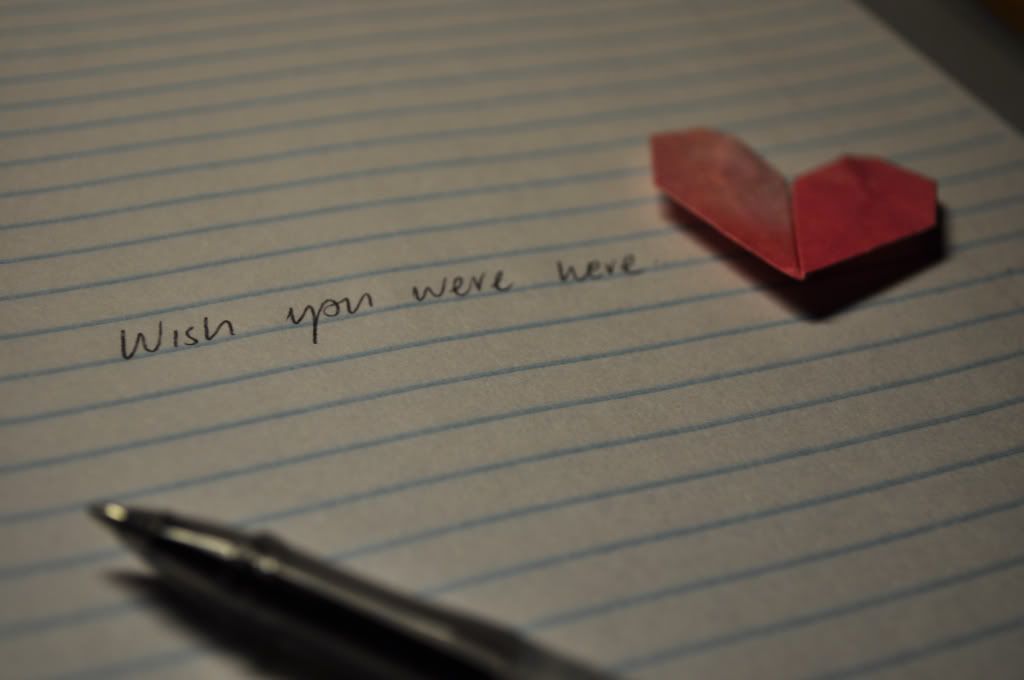 Wish you were here